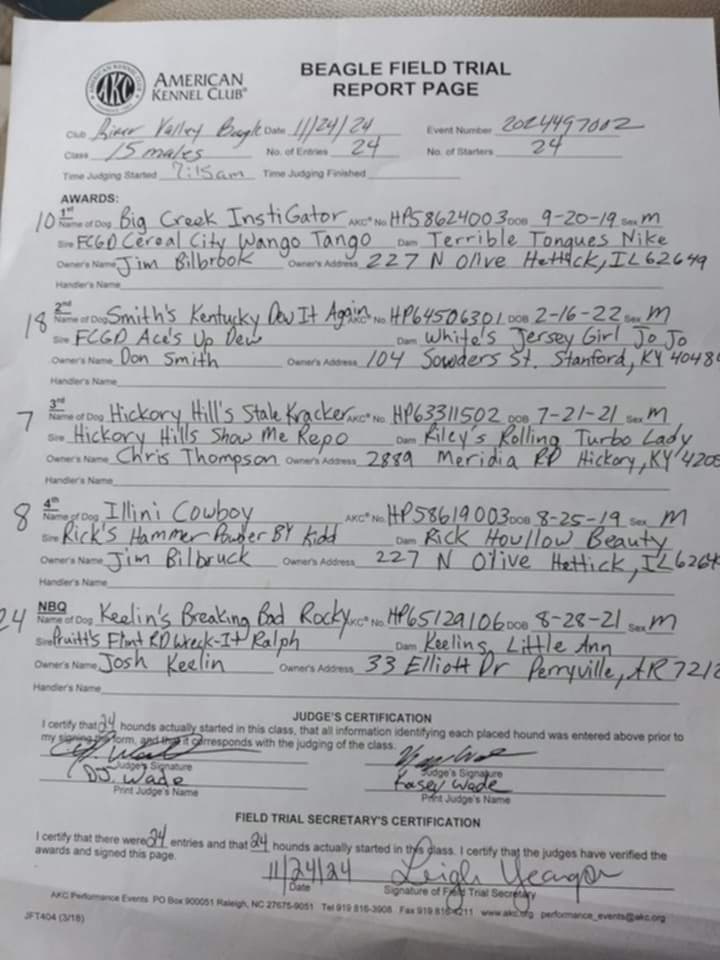 AMERICAN KENNEL CLUB®
BEAGLE FIELD TRIAL
REPORT PAGE
Club River Valley Beagle Date 11/24/24 Event Number 2024497002
Class 15 males No. of Entries 24 No. of Starters 24
Time Judging Started 7:15am Time Judging Finished
AWARDS:
10 1st Name of Dog Big Creek InstiGator AKC® No. HP58624003 DOB 9-20-19 Sex M
Sire FCGD Cereal City Wango Tango Dam Terrible Tongues Nike
Owner's Name Jim Bilbrook Owner's Address 227 N Olive Hettick, IL 62649
Handler's Name
18 2nd Name of Dog Smith's Kentucky Dew It Again AKC® No. HP64506301 DOB 2-16-22 Sex M
Sire FCGD Ace's Up Dew Dam White's Jersey Girl Jo Jo
Owner's Name Don Smith Owner's Address 104 Sowders St. Stanford, KY 4048
Handler's Name
7 3rd Name of Dog Hickory Hill's Stale Kracker AKC® No. HP63311502 DOB 7-21-21 Sex M
Sire Hickory Hills Show Me Repo Dam Riley's Rolling Turbo Lady
Owner's Name Chris Thompson Owner's Address 2889 Meridia RD Hickory, KY 4205
Handler's Name
8 4th Name of Dog Illini Cowboy AKC® No. HP58619003 DOB 8-25-19 Sex M
Sire Rick's Hammer Powder BY Kidd Dam Rick Houllow Beauty
Owner's Name Jim Bilbruck Owner's Address 227 N Olive Hettick, IL 6264
Handler's Name
24 NBQ Name of Dog Keelin's Breaking Bad Rocky AKC® No. HP65129106 DOB 8-28-21 Sex M
Sire Pruitt's Flint RD Wreck-It Ralph Dam Keelins Little Ann
Owner's Name Josh Keelin Owner's Address 33 Elliott Dr Perryville, AR 7212
Handler's Name
JUDGE'S CERTIFICATION
I certify that 24 hounds actually started in this class, that all information identifying each placed hound was entered above prior to
my signing this form, and that it corresponds with the judging of the class.
Judge's Signature Judge's Signature
DJ. Wade Kasey Wade
Print Judge's Name Print Judge's Name
FIELD TRIAL SECRETARY'S CERTIFICATION
I certify that there were 24 entries and that 24 hounds actually started in this class. I certify that the judges have verified the
awards and signed this page.
11/24/24 Leigh Yeager
Date Signature of Field Trial Secretary
AKC Performance Events PO Box 900051 Raleigh, NC 27675-9051 Tel 919 816-3908 Fax 919 816-4211 www.akc.org performance_events@akc.org
JFT404 (3/18)